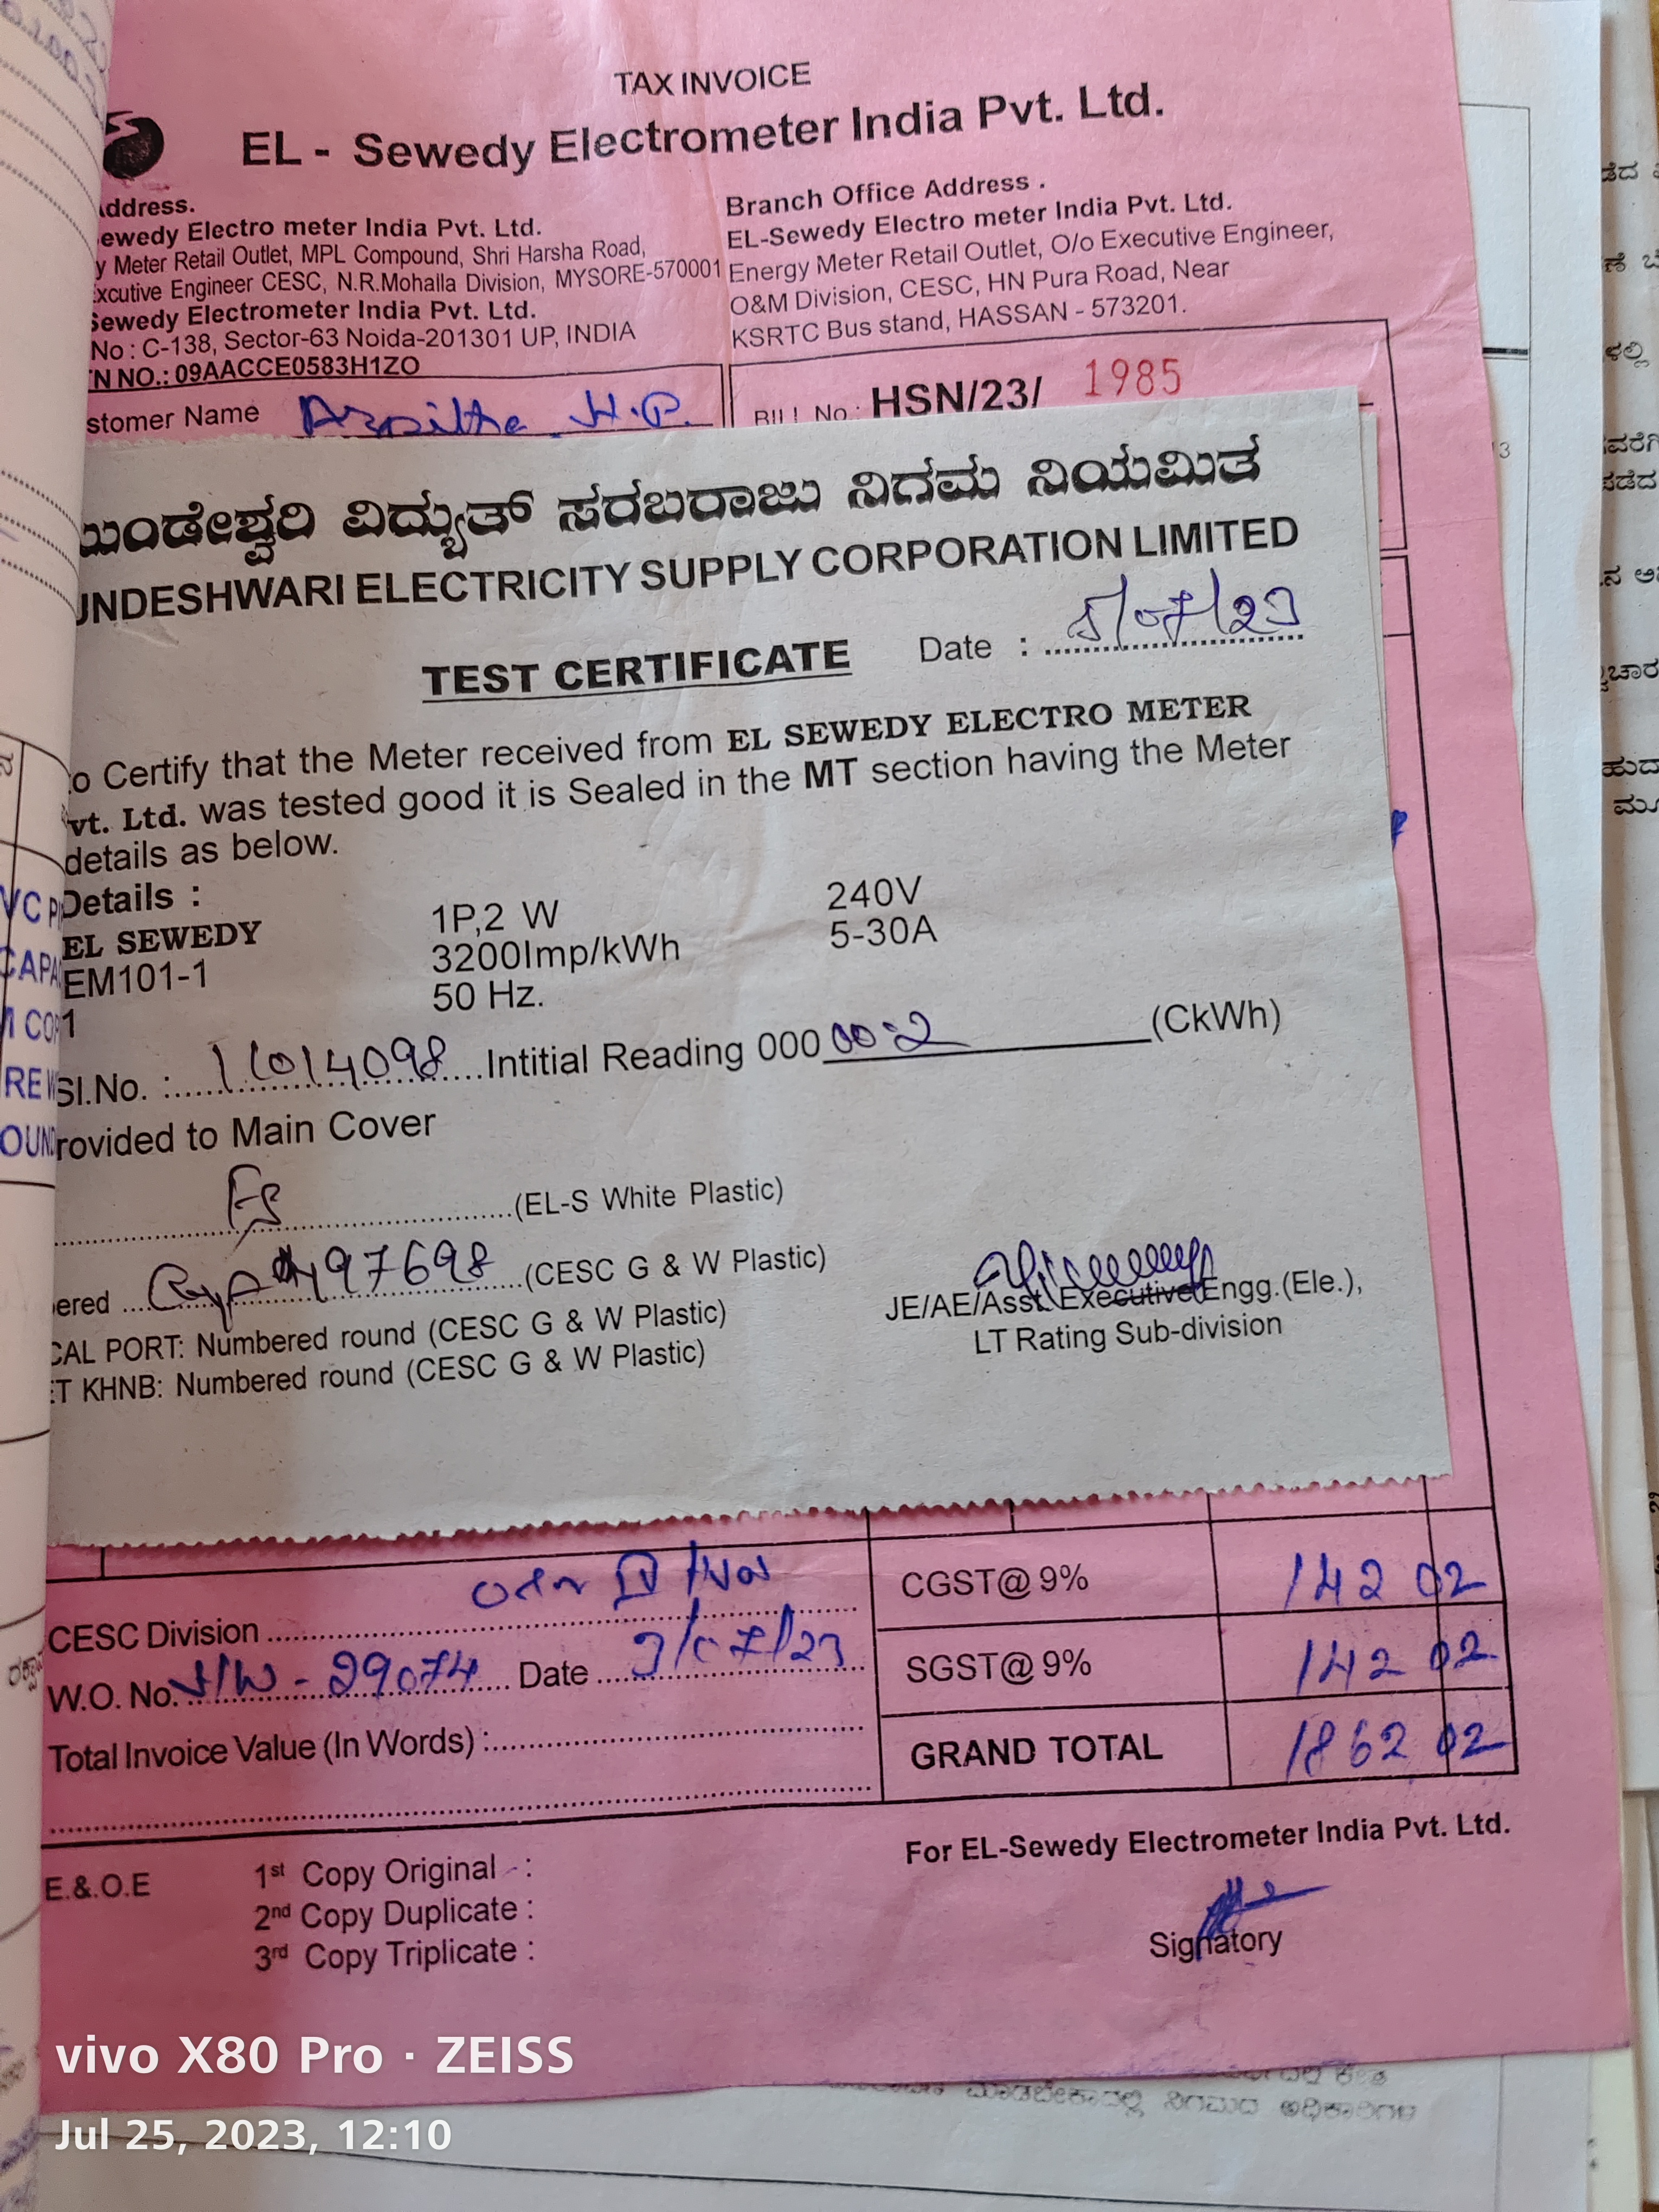 TAX INVOICE
EL - Sewedy Electrometer India Pvt. Ltd.
ddress.
ewedy Electro meter India Pvt. Ltd.
y Meter Retail Outlet, MPL Compound, Shri Harsha Road,
xcutive Engineer CESC, N.R.Mohalla Division, MYSORE-570001
Sewedy Electrometer India Pvt. Ltd.
No : C-138, Sector-63 Noida-201301 UP, INDIA
N NO.: 09AACCE0583H1ZO
Branch Office Address .
EL-Sewedy Electro meter India Pvt. Ltd.
Energy Meter Retail Outlet, O/o Executive Engineer,
O&M Division, CESC, HN Pura Road, Near
KSRTC Bus stand, HASSAN - 573201.
stomer Name Arpitha H.P.
BILL No.: HSN/23/ 1985
ಮುಂಡೇಶ್ವರಿ ವಿದ್ಯುತ್ ಸರಬರಾಜು ನಿಗಮ ನಿಯಮಿತ
UNDESHWARI ELECTRICITY SUPPLY CORPORATION LIMITED
TEST CERTIFICATE Date : 5/07/23
to Certify that the Meter received from EL SEWEDY ELECTRO METER
vt. Ltd. was tested good it is Sealed in the MT section having the Meter
details as below.
Details :
EL SEWEDY 1P,2 W 240V
EM101-1 3200Imp/kWh 5-30A
1 50 Hz.
Sl.No. : 11014098 Intitial Reading 000 00.2 (CkWh)
rovided to Main Cover
(EL-S White Plastic)
ered 497698 (CESC G & W Plastic)
CAL PORT: Numbered round (CESC G & W Plastic)
ET KHNB: Numbered round (CESC G & W Plastic)
JE/AE/Asst. Executive Engg.(Ele.),
LT Rating Sub-division
CESC Division
W.O. No. 29074 Date 3/07/23
Total Invoice Value (In Words) :
CGST@ 9% 142 02
SGST@ 9% 142 02
GRAND TOTAL 1862 02
E.&.O.E
1st Copy Original - :
2nd Copy Duplicate :
3rd Copy Triplicate :
For EL-Sewedy Electrometer India Pvt. Ltd.
Signatory
vivo X80 Pro · ZEISS
Jul 25, 2023, 12:10